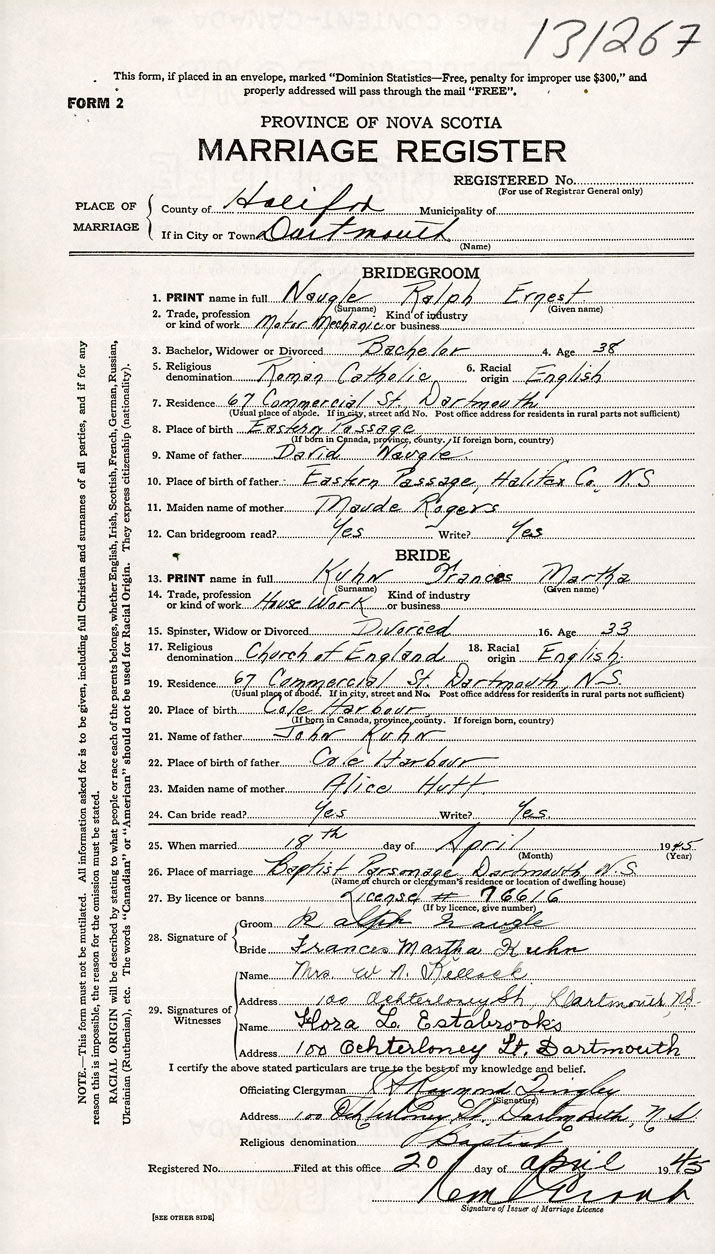 131267
This form, if placed in an envelope, marked "Dominion Statistics—Free, penalty for improper use $300," and
properly addressed will pass through the mail "FREE".
FORM 2
PROVINCE OF NOVA SCOTIA
MARRIAGE REGISTER
REGISTERED No.
(For use of Registrar General only)
PLACE OF MARRIAGE
County of Halifax Municipality of
If in City or Town Dartmouth
(Name)
BRIDEGROOM
1. PRINT name in full Naugle Ralph Ernest
(Surname) (Given name)
2. Trade, profession or kind of work Motor Mechanic Kind of industry or business
3. Bachelor, Widower or Divorced Bachelor 4. Age 38
5. Religious denomination Roman Catholic 6. Racial origin English
7. Residence 67 Commercial St. Dartmouth
(Usual place of abode. If in city, street and No. Post office address for residents in rural parts not sufficient)
8. Place of birth Eastern Passage
(If born in Canada, province, county. If foreign born, country)
9. Name of father David Naugle
10. Place of birth of father Eastern Passage, Halifax Co. N.S
11. Maiden name of mother Maude Rogers
12. Can bridegroom read? Yes Write? Yes
BRIDE
13. PRINT name in full Kuhn Frances Martha
(Surname) (Given name)
14. Trade, profession or kind of work House Work Kind of industry or business
15. Spinster, Widow or Divorced Divorced 16. Age 33
17. Religious denomination Church of England 18. Racial origin English
19. Residence 67 Commercial St. Dartmouth, N.S.
(Usual place of abode. If in city, street and No. Post office address for residents in rural parts not sufficient)
20. Place of birth Cole Harbour
(If born in Canada, province, county. If foreign born, country)
21. Name of father John Kuhn
22. Place of birth of father Cole Harbour
23. Maiden name of mother Alice Hutt
24. Can bride read? Yes Write? Yes.
25. When married 18th day of April 1945
(Month) (Year)
26. Place of marriage Baptist Parsonage Dartmouth, N.S.
(Name of church or clergyman's residence or location of dwelling house)
27. By licence or banns License # 76616
(If by licence, give number)
28. Signature of
Groom Ralph Naugle
Bride Frances Martha Kuhn
29. Signatures of Witnesses
Name Mrs. W. N.
Address 100 Ochterloney St, Dartmouth, N.S.
Name Flora L. Estabrooks
Address 100 Ochterloney St. Dartmouth
I certify the above stated particulars are true to the best of my knowledge and belief.
Officiating Clergyman Raymond Tingley
(Signature)
Address 100 Ochterloney St. Dartmouth, N.S.
Religious denomination Baptist
Registered No. Filed at this office 20 day of april 1945
Signature of Issuer of Marriage Licence
[SEE OTHER SIDE]
NOTE.—This form must not be mutilated. All information asked for is to be given, including full Christian and surnames of all parties, and if for any
reason this is impossible, the reason for the omission must be stated.
RACIAL ORIGIN will be described by stating to what people or race each of the parents belongs, whether English, Irish, Scottish, French, German, Russian,
Ukrainian (Ruthenian), etc. The words "Canadian" or "American" should not be used for Racial Origin. They express citizenship (nationality).